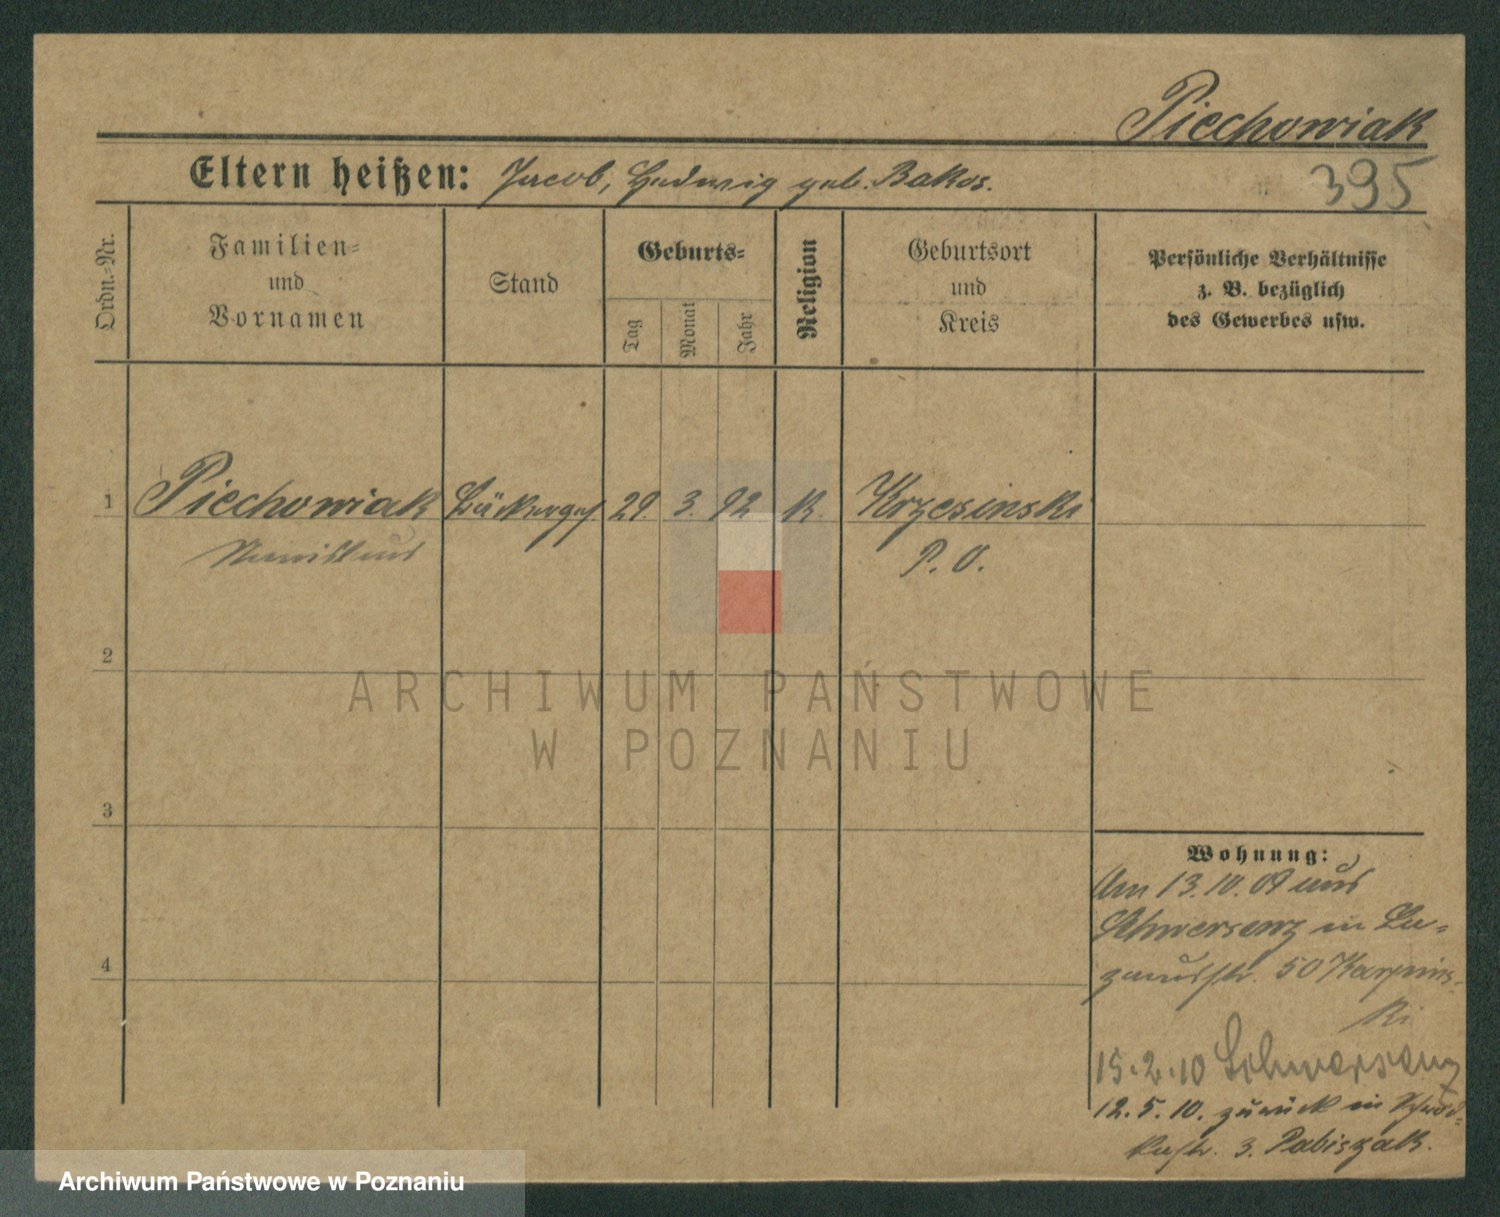 Piechowiak
395
Eltern heißen: Jacob, Hedwig geb. Bakos.
Ordn.-Nr.
Familien-
und
Vornamen
Stand
Geburts-
Tag
Monat
Jahr
Religion
Geburtsort
und
Kreis
Persönliche Verhältnisse
z. B. bezüglich
des Gewerbes usw.
1 Piechowiak Bäckerges. 29. 3. 92 K. Krzesinski
P. O.
2
3
4
Wohnung:
Am 13.10.09 aus
Schwersenz in
50 Karpins-
ki
15.2.10 Schwersenz
12.5.10. zurück in
3. Pabiszak.
ARCHIWUM PAŃSTWOWE
W POZNANIU
Archiwum Państwowe w Poznaniu